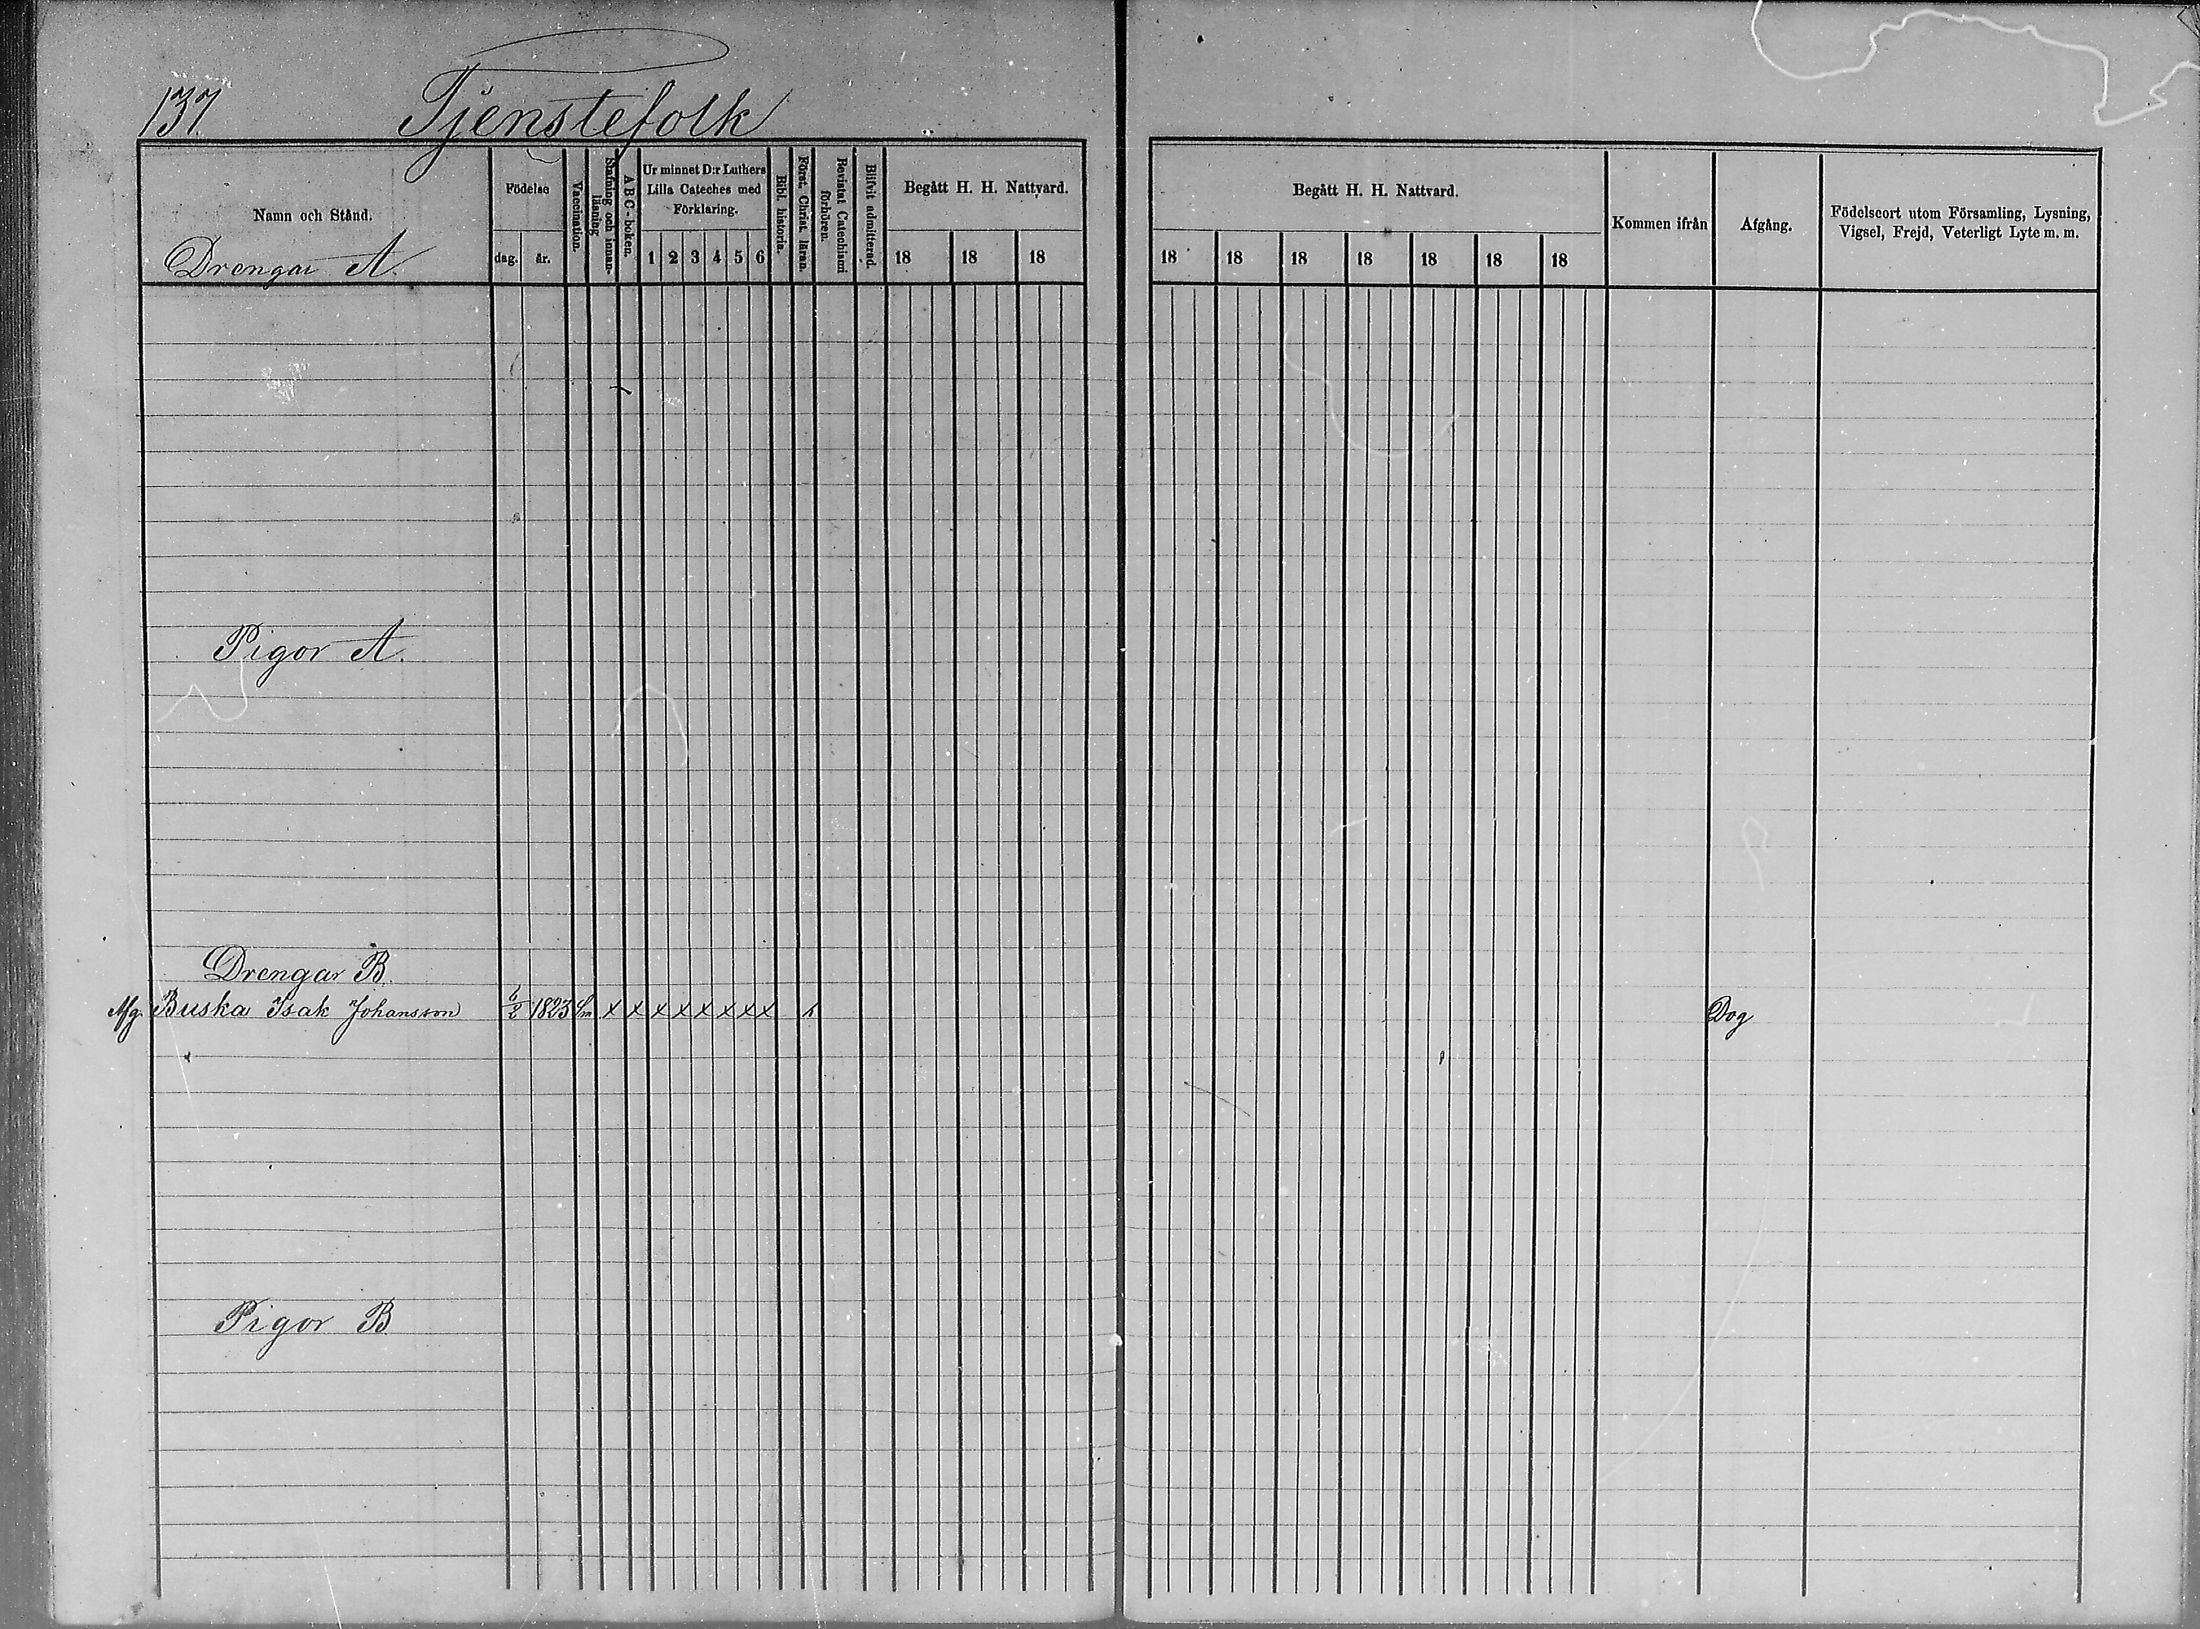 137.
Tjenstefolk
Namn och Stånd.
Drengar A.
Födelse
dag.
år.
Vaccination.
Stafning och innan-
läsning
A B C - boken.
Ur minnet D:r Luthers
Lilla Cateches med
Förklaring.
1 2 3 4 5 6
Bibl. historia.
Först. Christ. läran.
Bevistat Catechismi
förhören.
Blifvit admitterad.
Begått H. H. Nattvard.
18 18 18
Begått H. H. Nattvard.
18 18 18 18 18 18 18
Kommen ifrån
Afgång.
Födelseort utom Församling, Lysning,
Vigsel, Frejd, Veterligt Lyte m. m.
Pigor A.
Drengar B.
Buska Isak Johansson 1823 x x x x x x x x Dog
Pigor B